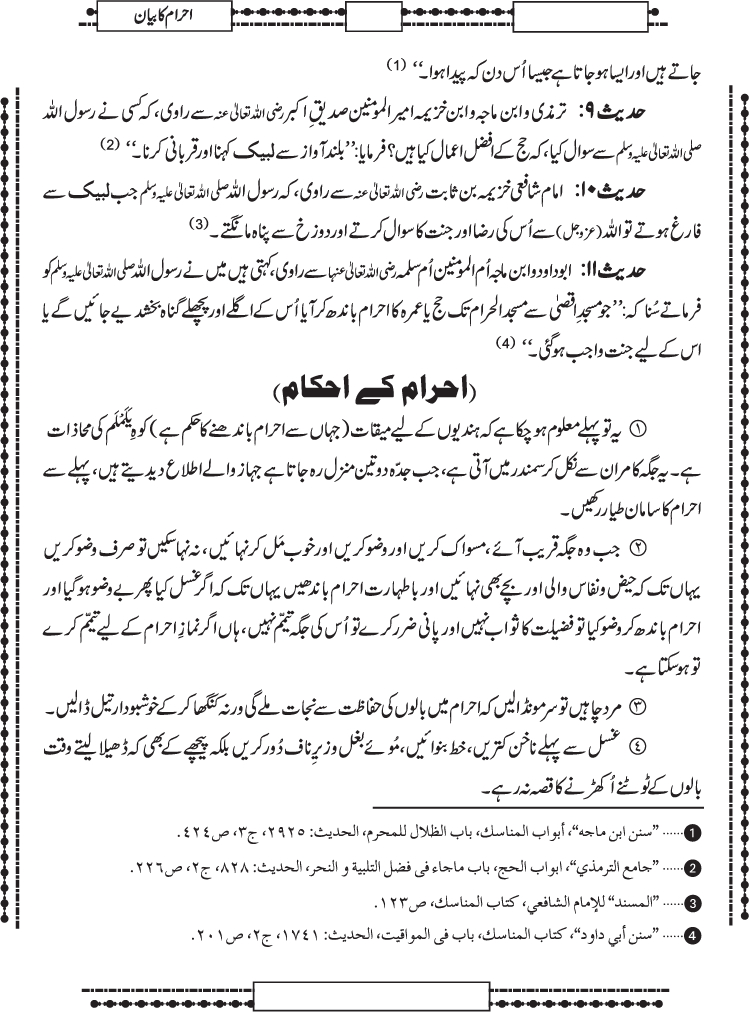 احرام کا بیان
جاتے ہیں اور ایسا ہو جاتا ہے جیسا اُس دن کہ پیدا ہوا۔‘‘ (1)
حدیث ۹: ترمذی و ابن ماجہ و ابن خزیمہ امیر المومنین صدیقِ اکبر رضی اللہ تعالیٰ عنہ سے راوی، کہ کسی نے رسول اللہ
صلی اللہ تعالیٰ علیہ وسلم سے سوال کیا، کہ حج کے افضل اعمال کیا ہیں؟ فرمایا: ’’بلند آواز سے لبیک کہنا اور قربانی کرنا۔‘‘ (2)
حدیث ۱۰: امام شافعی خزیمہ بن ثابت رضی اللہ تعالیٰ عنہ سے راوی، کہ رسول اللہ صلی اللہ تعالیٰ علیہ وسلم جب لبیک سے
فارغ ہوتے تو اللہ (عزوجل) سے اُس کی رضا اور جنت کا سوال کرتے اور دوزخ سے پناہ مانگتے۔ (3)
حدیث ۱۱: ابو داود و ابن ماجہ اُم المومنین اُم سلمہ رضی اللہ تعالیٰ عنہا سے راوی، کہتی ہیں میں نے رسول اللہ صلی اللہ تعالیٰ علیہ وسلم کو
فرماتے سُنا کہ: ’’جو مسجدِ اقصیٰ سے مسجد الحرام تک حج یا عمرہ کا احرام باندھ کر آیا اُس کے اگلے اور پچھلے گناہ بخشدیے جائیں گے یا
اس کے لیے جنت واجب ہوگئی۔‘‘ (4)
(احرام کے احکام)
① یہ تو پہلے معلوم ہو چکا ہے کہ ہندیوں کے لیے میقات (جہاں سے احرام باندھنے کا حکم ہے) کوہِ یَلَمْلَم کی محاذات
ہے۔ یہ جگہ کامران سے نکل کر سمندر میں آتی ہے، جب جدّہ دو تین منزل رہ جاتا ہے جہاز والے اطلاع دیدیتے ہیں، پہلے سے
احرام کا سامان طیار رکھیں۔
② جب وہ جگہ قریب آئے، مسواک کریں اور وضو کریں اور خوب مَل کر نہائیں، نہ نہا سکیں تو صرف وضو کریں
یہاں تک کہ حیض و نفاس والی اور بچے بھی نہائیں اور باطہارت احرام باندھیں یہاں تک کہ اگر غسل کیا پھر بے وضو ہوگیا اور
احرام باندھ کر وضو کیا تو فضیلت کا ثواب نہیں اور پانی ضرر کرے تو اُس کی جگہ تیمّم نہیں، ہاں اگر نمازِ احرام کے لیے تیمّم کرے
تو ہو سکتا ہے۔
③ مرد چاہیں تو سر مونڈالیں کہ احرام میں بالوں کی حفاظت سے نجات ملے گی ورنہ کنگھا کر کے خوشبودار تیل ڈالیں۔
④ غسل سے پہلے ناخن کتریں، خط بنوائیں، مُوئے بغل و زیرِ ناف دُور کریں بلکہ پیچھے کے بھی کہ ڈھیلا لیتے وقت
بالوں کے ٹوٹنے اُکھڑنے کا قصہ نہ رہے۔
1 ...... ”سنن ابن ماجه“، أبواب المناسك، باب الظلال للمحرم، الحديث: ٢٩٢٥، ج٣، ص٤٢٤.
2 ...... ”جامع الترمذي“، ابواب الحج، باب ماجاء فى فضل التلبية و النحر، الحديث: ٨٢٨، ج٢، ص٢٢٦.
3 ...... ”المسند“ للإمام الشافعي، كتاب المناسك، ص١٢٣.
4 ...... ”سنن أبي داود“، كتاب المناسك، باب فى المواقيت، الحديث: ١٧٤١، ج٢، ص٢٠١.